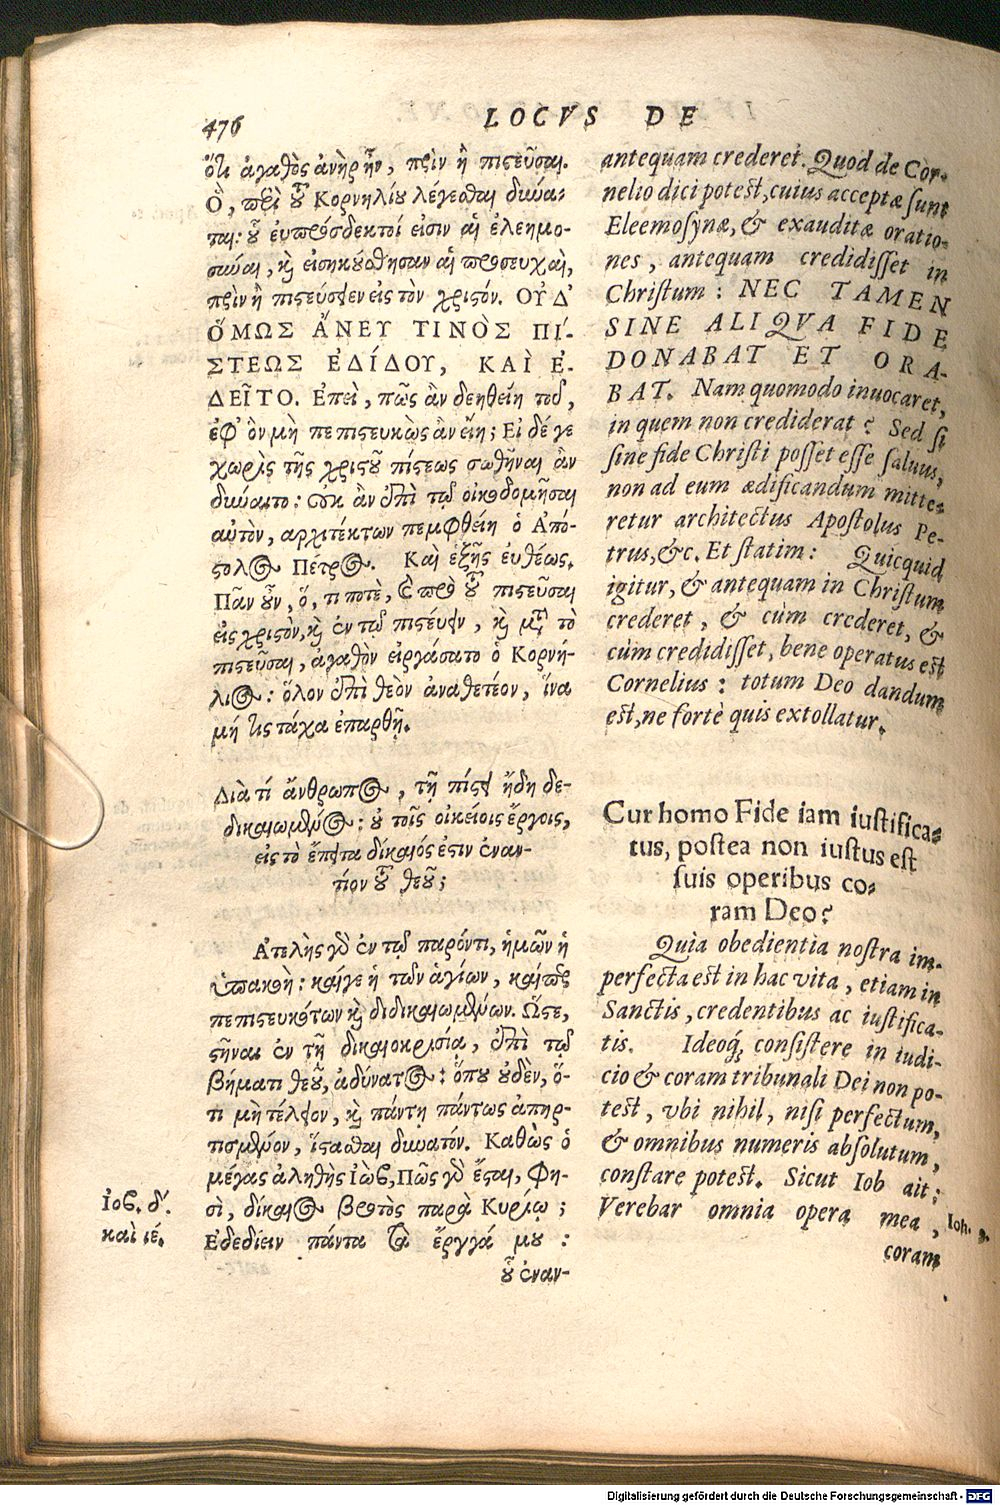 476
LOCVS DE
ὅτι ἀγαθὸς ἀνὴρ ἦν, πρὶν ἢ πιστεῦσαι.
Ὃ, περὶ τοῦ Κορνηλίου λέγεσθαι δύνα-
ται: οὗ εὐπρόσδεκτοί εἰσιν αἱ ἐλεημο-
σύναι, καὶ εἰσηκούσθησαν αἱ προσευχαὶ,
πρὶν ἢ πιστεύσειεν εἰς τὸν χριστόν. ΟΥ̓Δ'
ὍΜΩΣ ἌΝΕΥ ΤΙΝῸΣ ΠΊ-
ΣΤΕΩΣ ἘΔΊΔΟΥ, ΚΑῚ Ἐ-
ΔΕΙ͂ΤΟ. Ἐπεὶ, πῶς ἂν δεηθείη τοῦ,
ἐφ' ὃν μὴ πεπιστευκὼς ἂν εἴη; Εἰ δέ γε
χωρὶς τῆς χριστοῦ πίστεως σωθῆναι ἂν
δύναιτο: οὐκ ἂν ἐπὶ τῷ οἰκοδομῆσαι
αὐτὸν, αρχιτέκτων πεμφθείη ὁ Ἀπό-
στολος Πέτρος. Καὶ ἑξῆς εὐθέως.
Πᾶν οὖν, ὅ, τι ποτὲ, καὶ πρὸ τοῦ πιστεῦσαι
εἰς χριστὸν, καὶ ἐν τῷ πιστεύειν, καὶ μετὰ τὸ
πιστεῦσαι, ἀγαθὸν εἰργάσατο ὁ Κορνή-
λιος: ὅλον ἐπὶ θεὸν ἀναθετέον, ἵνα
μή τις τάχα ἐπαρθῇ.
Διὰ τί ἄνθρωπος, τῇ πίστει ἤδη δε-
δικαιωμένος: οὐ τοῖς οἰκείοις ἔργοις,
εἰς τὸ ἔπειτα δίκαιός ἐστιν ἐναν-
τίον τοῦ θεοῦ;
Ἀτελὴς γὰρ ἐν τῷ παρόντι, ἡμῶν ἡ
ὑπακοὴ: καίγε ἡ τῶν ἁγίων, καίπερ
πεπιστευκότων καὶ δεδικαιωμένων. Ὥστε,
στῆναι ἐν τῇ δικαιοκρισίᾳ, ἐπὶ τῷ
βήματι θεοῦ, ἀδύνατος: ὅπου οὐδὲν, ὅ-
τι μὴ τέλειον, καὶ πάντη πάντως ἀπηρ-
τισμένον, ἵστασθαι δυνατόν. Καθὼς ὁ
μέγας ἀληθὴς Ἰὼβ, Πῶς γὰρ ἔσται, Φη-
σὶ, δίκαιος βροτὸς παρὰ Κυρίῳ;
Ἐδεδίειν πάντα τὰ ἔργγά μου:
οὗ ἐναν-
Ἰοβ. δ'.
καὶ ιέ.
antequam crederet. Quod de Cor-
nelio dici potest, cuius acceptæ sunt
Eleemosynæ, & exauditæ oratio-
nes, antequam credidisset in
Christum: NEC TAMEN
SINE ALIQVA FIDE
DONABAT ET ORA-
BAT. Nam quomodo inuocaret,
in quem non crediderat? Sed si
sine fide Christi posset esse saluus,
non ad eum ædificandum mitte-
retur architectus Apostolus Pe-
trus, &c. Et statim: Quicquid
igitur, & antequam in Christum
crederet, & cùm crederet, &
cùm credidisset, bene operatus est
Cornelius: totum Deo dandum
est, ne fortè quis extollatur.
Cur homo Fide iam iustifica-
tus, postea non iustus est
suis operibus co-
ram Deo?
Quia obedientia nostra im-
perfecta est in hac vita, etiam in
Sanctis, credentibus ac iustifica-
tis. Ideoq́; consistere in iudi-
cio & coram tribunali Dei non po-
test, vbi nihil, nisi perfectum,
& omnibus numeris absolutum,
constare potest. Sicut Iob ait;
Verebar omnia opera mea,
coram
Ioh. 9.
Digitalisierung gefördert durch die Deutsche Forschungsgemeinschaft - DFG